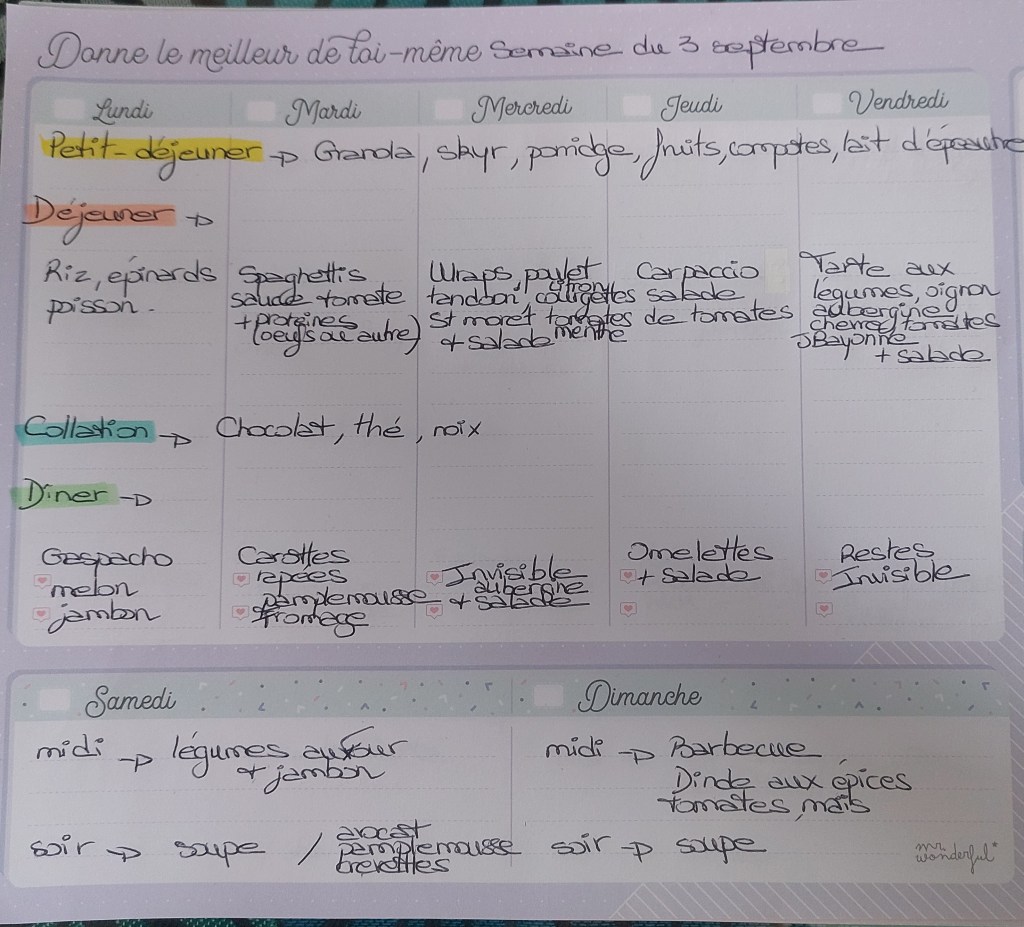 Donne le meilleur de toi-même Semaine du 3 septembre
Lundi Mardi Mercredi Jeudi Vendredi
Petit-déjeuner → Granola, skyr, porridge, fruits, compotes, lait d'épeautre
Déjeuner →
Riz, épinards
poisson.
Spaghettis
sauce tomate
+ protéines
(oeufs ou autre)
Wraps, poulet
tandoori, citron, courgettes
St moret tomates
+ salade menthe
Carpaccio
salade
de tomates
Tarte aux
légumes, oignon
aubergine
cherry tomates
J Bayonne
+ salade
Collation → Chocolat, thé, noix
Dîner →
Gaspacho
melon
jambon
Carottes
rapées
pamplemousse
fromage
Invisible
aubergine
+ salade
Omelettes
+ salade
Restes
Invisible
Samedi
midi → légumes au four
+ jambon
soir → soupe / avocat
pamplemousse
crevettes
Dimanche
midi → Barbecue
Dinde aux épices
tomates, maïs
soir → soupe
mr.
wonderful*